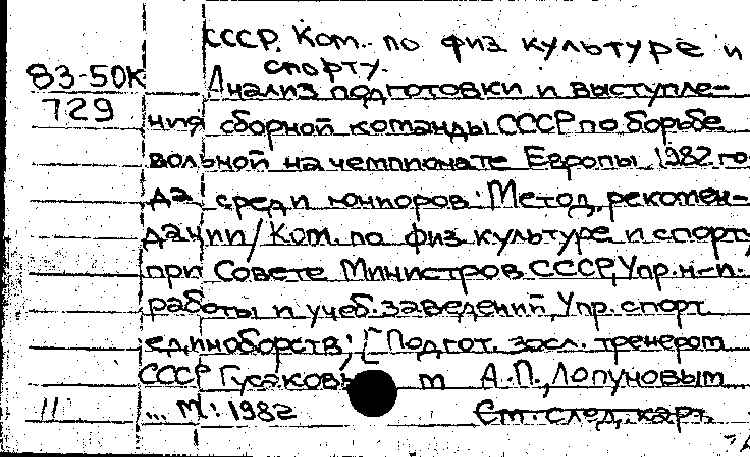 СССР. Ком. по физ культуре и
спорту.
83-50К
729
Анализ подготовки и выступле-
ния сборной команды СССР по борьбе
вольной на чемпионате Европы 1982 го
да среди юниоров: Метод. рекомен-
дации/Ком. по физ. культуре и спорту
при Совете Министров СССР, Упр. н-и.
работы и учеб. заведений, Упр. спорт
единоборств; [Подгот. засл. тренером
СССР Гусаковы м А.П., Лопуновым
11 ... М.: 1982 См. след. карт.